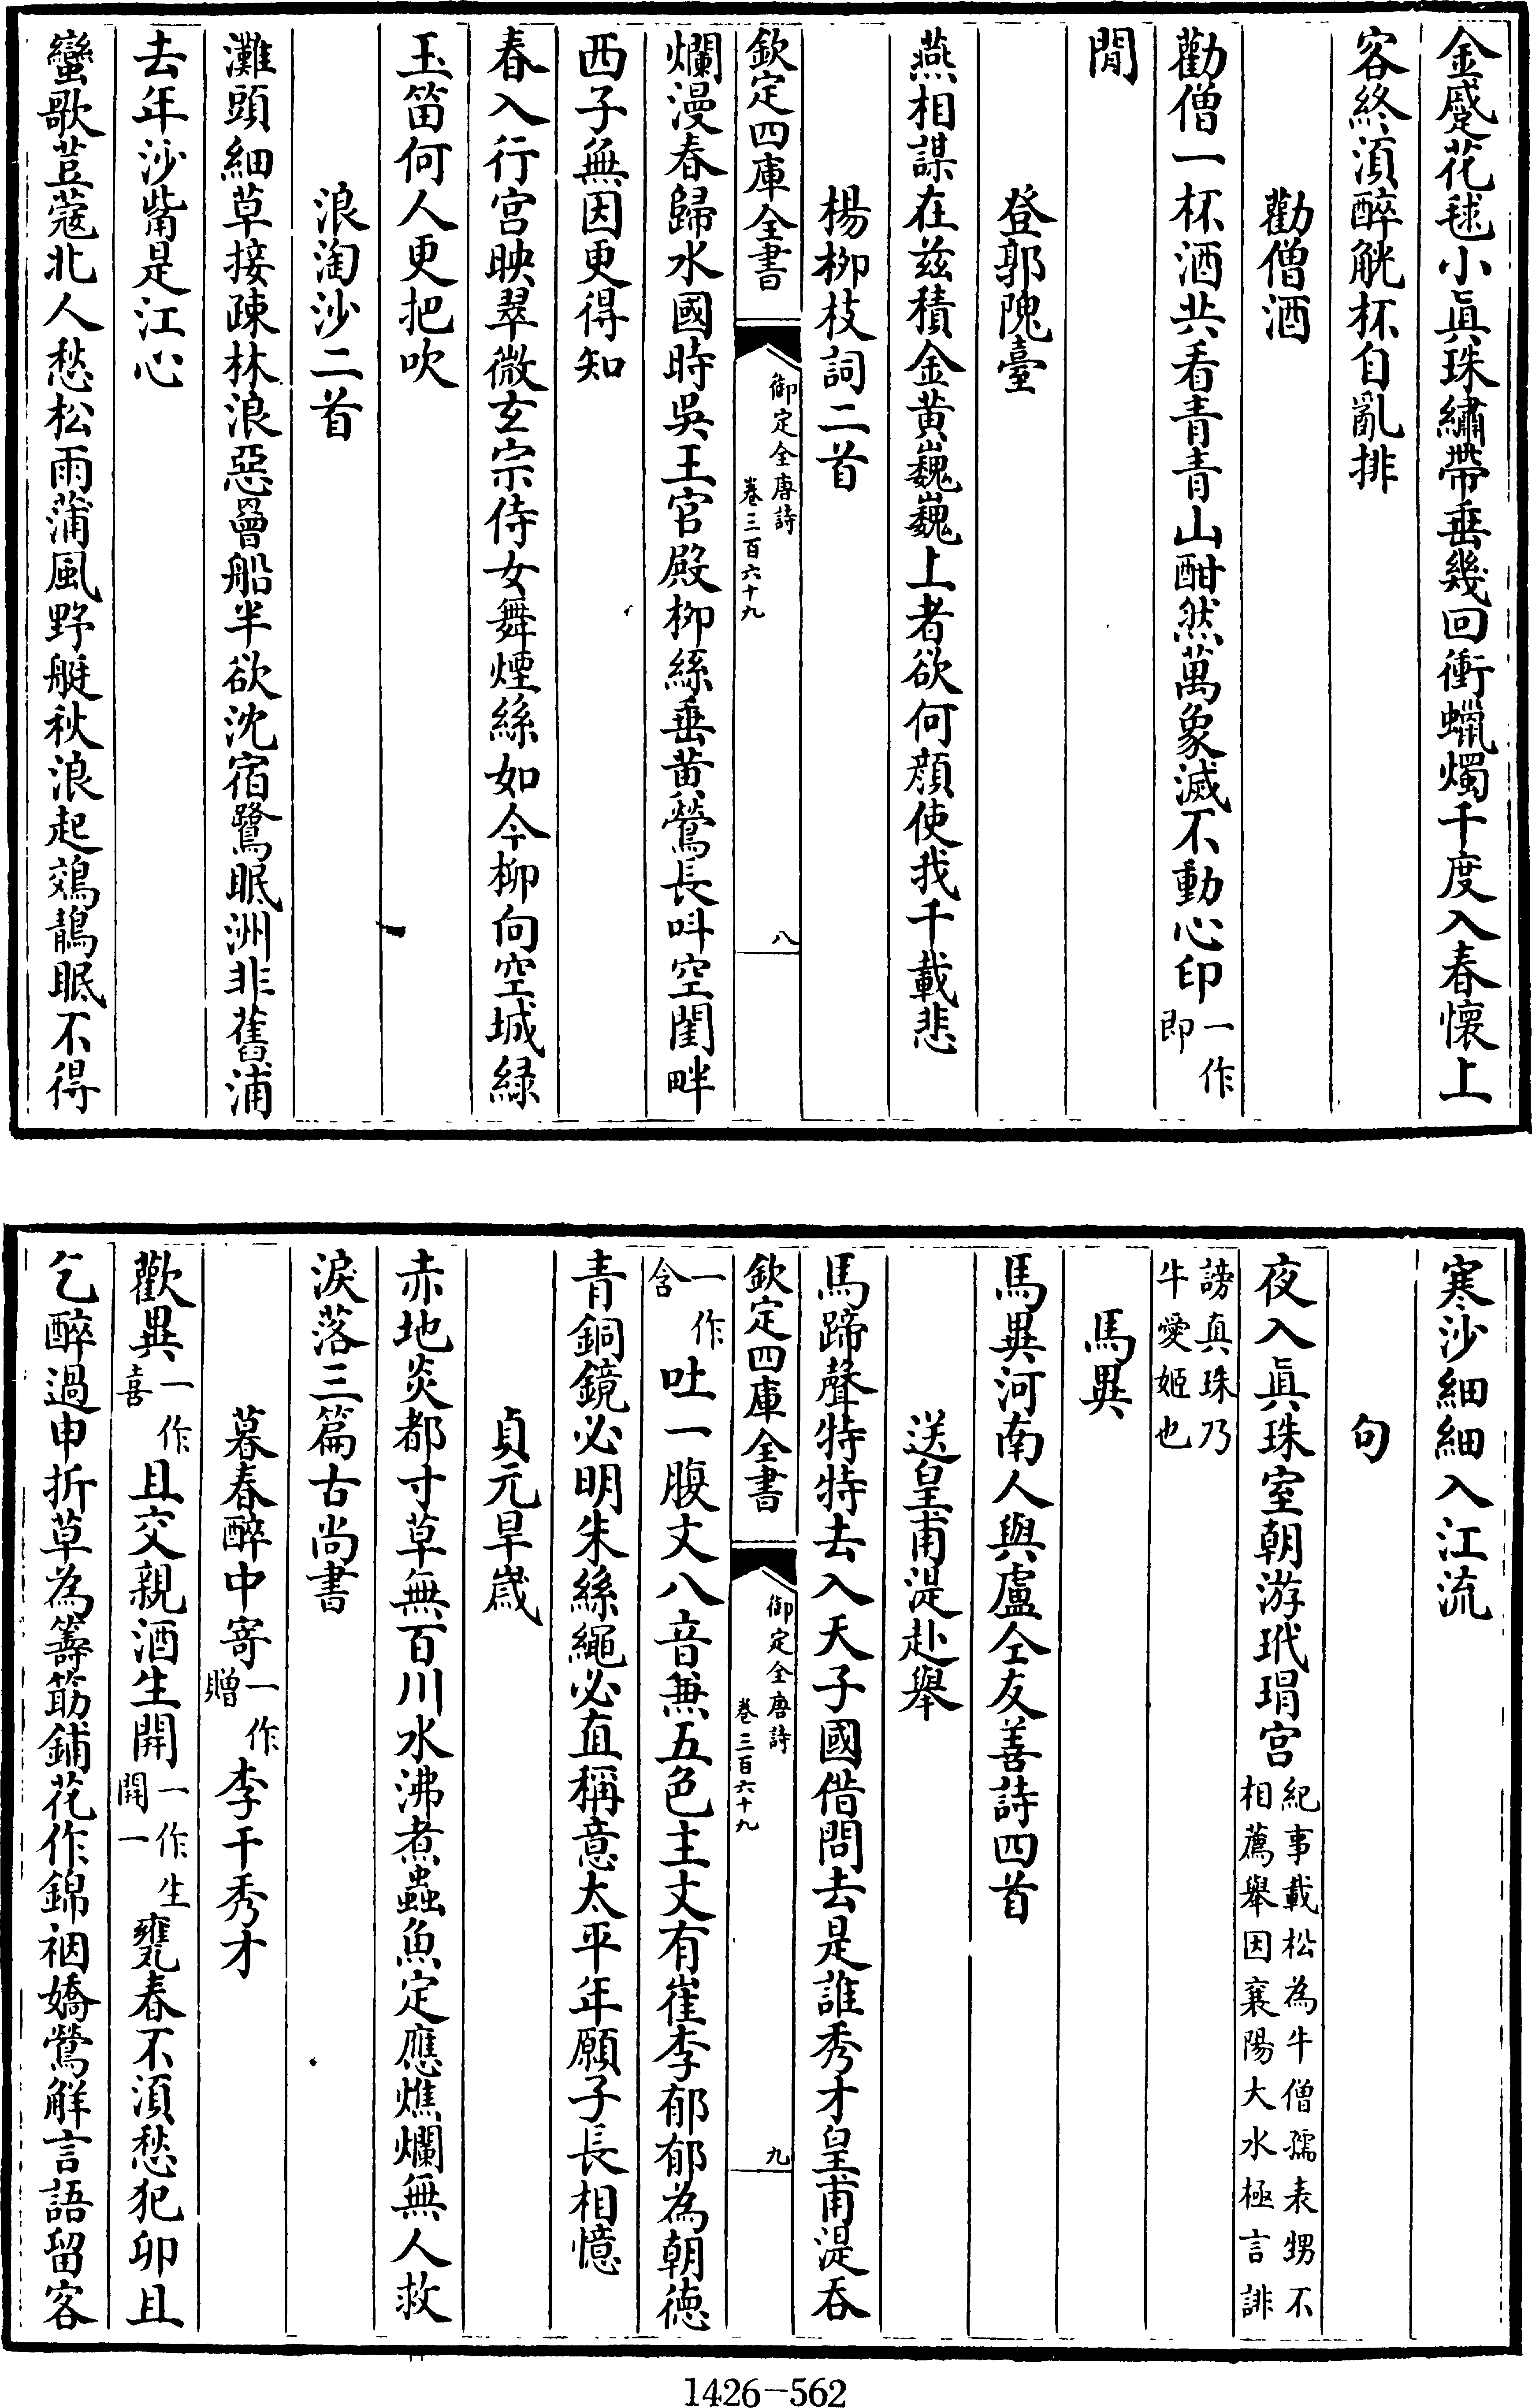 金蹙花毬小真珠繡帶垂幾回衝蠟燭千度入春懷上
客終須醉觥杯自亂排
勸僧酒
勸僧一杯酒共看青青山酣然萬象滅不動心印一作即
閒
登郭隗臺
燕相謀在兹積金黄巍巍上者欲何顔使我千載悲
楊柳枝詞二首
欽定四庫全書
御定全唐詩
卷三百六十九
八
爛漫春歸水國時吳王宫殿柳絲垂黄鶯長呌空閨畔
西子無因更得知
春入行宫映翠微玄宗侍女舞煙絲如今柳向空城緑
玉笛何人更把吹
浪淘沙二首
灘頭細草接疎林浪惡罾船半欲沈宿鷺眠洲非舊浦
去年沙觜是江心
蠻歌荳蔻北人愁松雨蒲風野艇秋浪起鵁鶄眠不得
寒沙細細入江流
句
夜入真珠室朝游玳瑁宫紀事載松為牛僧孺表甥不相薦舉因襄陽大水極言誹
謗真珠乃牛愛姬也
馬異
馬異河南人與盧仝友善詩四首
送皇甫湜赴舉
馬蹄聲特特去入天子國借問去是誰秀才皇甫湜吞
欽定四庫全書
御定全唐詩
卷三百六十九
九
一作含吐一腹文八音兼五色主文有崔李郁郁為朝徳
青銅鏡必明朱絲繩必直稱意太平年願子長相憶
貞元旱歲
赤地炎都寸草無百川水沸煮蟲魚定應燋爛無人救
淚落三篇古尚書
暮春醉中寄一作贈李干秀才
歡異一作喜且交親酒生開一作生開一甕春不須愁犯卯且
乞醉過申折草為籌筯鋪花作錦裀嬌鶯解言語留客
1426-562